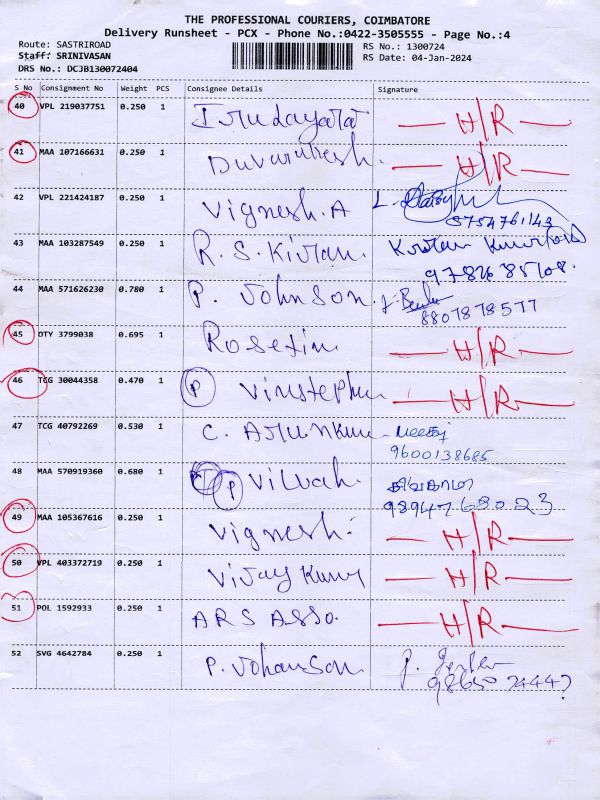 THE PROFESSIONAL COURIERS, COIMBATORE
Delivery Runsheet - PCX - Phone No.:0422-3505555 - Page No.:4
Route: SASTRIROAD RS No.: 1300724
Staff: SRINIVASAN RS Date: 04-Jan-2024
DRS No.: DCJB130072404
S No Consignment No Weight PCS Consignee Details Signature
40 VPL 219037751 0.250 1 Irudayaraj H/R
41 MAA 107166631 0.250 1 H/R
42 VPL 221424187 0.250 1 Vignesh. A
8754761143
43 MAA 103287549 0.250 1 R. S. Kiran.
9782685108.
44 MAA 571626230 0.780 1 P. Johnson.
8807878577
45 DTY 3799038 0.695 1 Rosefin H/R
46 TCG 30044358 0.470 1 P H/R
47 TCG 40792269 0.530 1 C. Arunkum
9600138685
48 MAA 570919360 0.680 1 P சிவகாமி
9894768023
49 MAA 105367616 0.250 1 Vignesh. H/R
50 VPL 403372719 0.250 1 Vijay Kumar H/R
51 POL 1592933 0.250 1 ARS ASSO. H/R
52 SVG 4642784 0.250 1 P. Johanson